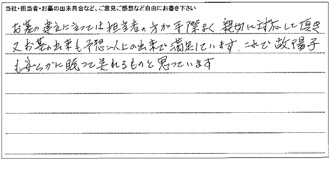 当社・担当者・お墓の出来具合など、ご意見ご感想など自由にお書き下さい
お墓の建立に当っては担当者の方が手際よく親切に対応して頂き
又お墓の出来も予想以上の出来で満足しています。これで故陽子
も安らかに眠って呉れるものと思っています